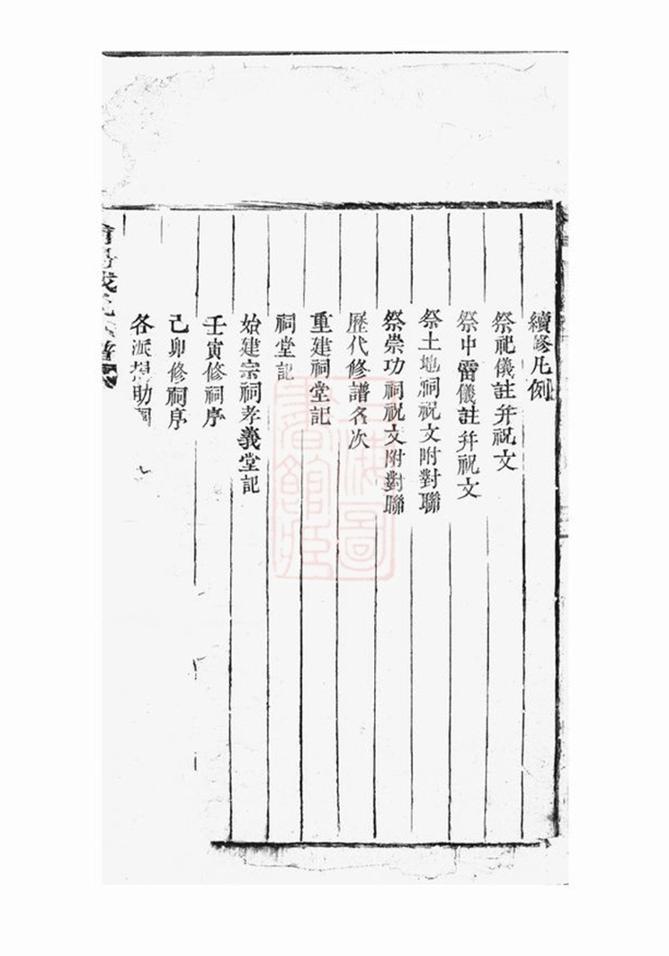 續修凡例
祭祀儀註并祝文
祭中霤儀註并祝文
祭土地祠祝文附對聯
祭崇功祠祝文附對聯
歷代修譜名次
重建祠堂記
祠堂記
始建宗祠孝義堂記
壬寅修祠序
己卯修祠序
各派捐助
海圖
書館